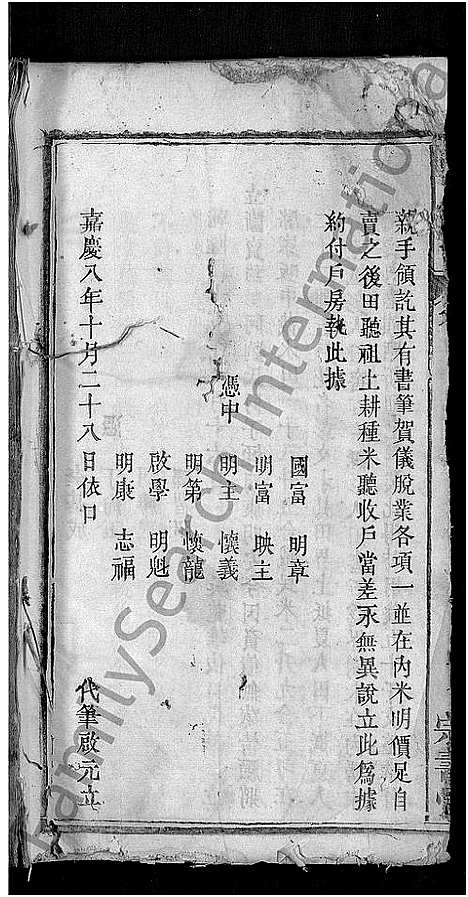 親手領訖其有書筆賀儀脫業各項一並在內米明價足自
賣之後田聽祖土耕種米聽收戶當差永無異說立此爲據
約付戶房執此據
憑中
國富 明章
明富 映主
明主 懷義
明第 懷龍
啟學 明魁
明康 志福
嘉慶八年十月二十八日依口
代筆啟元立
FamilySearch International